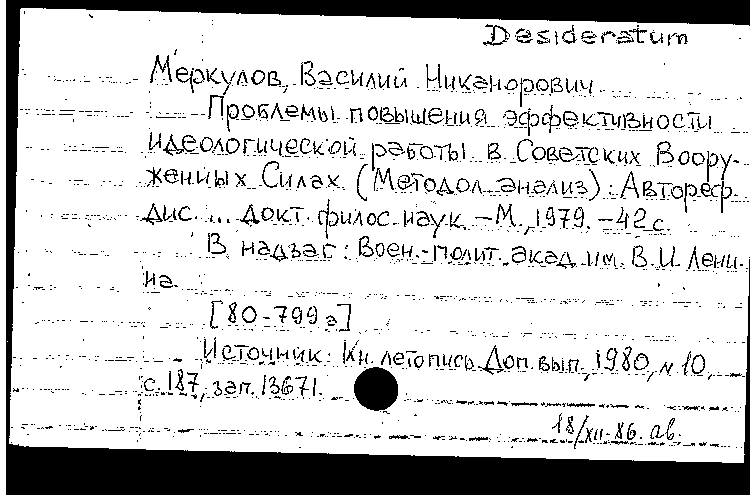 Desideratum
Меркулов, Василий Никанорович
Проблемы повышения эффективности
идеологической работы в Советских Воору-
женных Силах (Методол. анализ): Автореф.
дис. ... докт. филос. наук. - М., 1979. - 42 с.
В надзаг: Воен.-полит. акад. им. В.И. Лени-
на.
[80-799а]
Источник: Кн. летопись. Доп. вып., 1980, N 10,
с. 187, зап. 13671.
18/XII-86. ав.